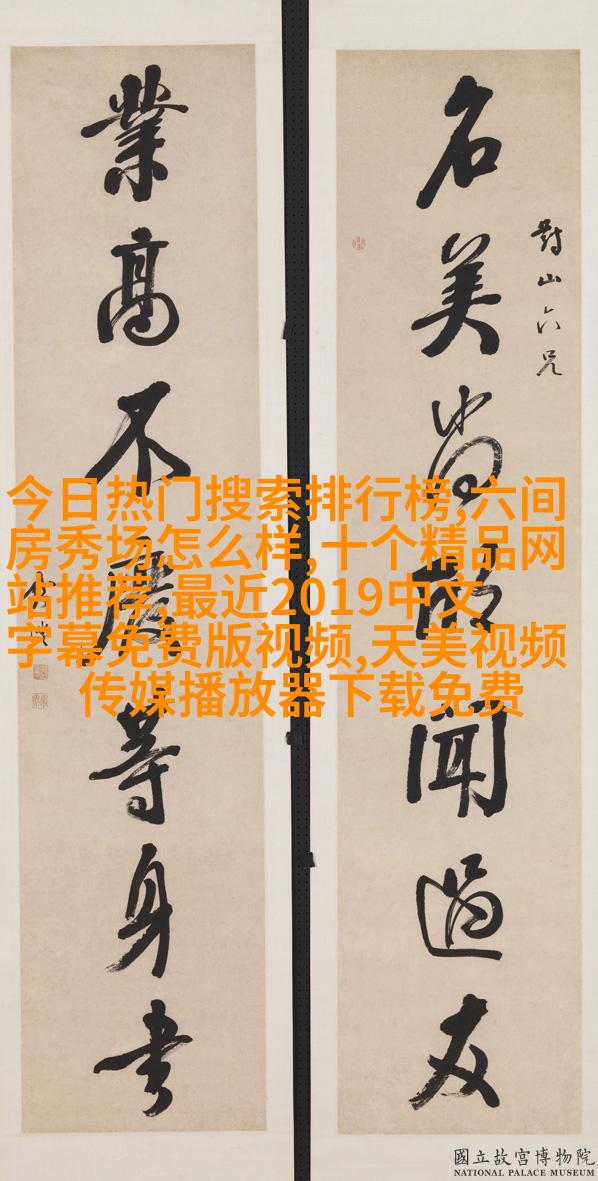 對山六兄
名美尚欣聞過友
業高不廢等身書
今日热门搜索排行榜,六间
房秀场怎么样,十个精品网
站推荐,最近2019中文
字幕免费版视频,天美视频
传媒播放器下载免费
國立故宮博物院
NATIONAL PALACE MUSEUM